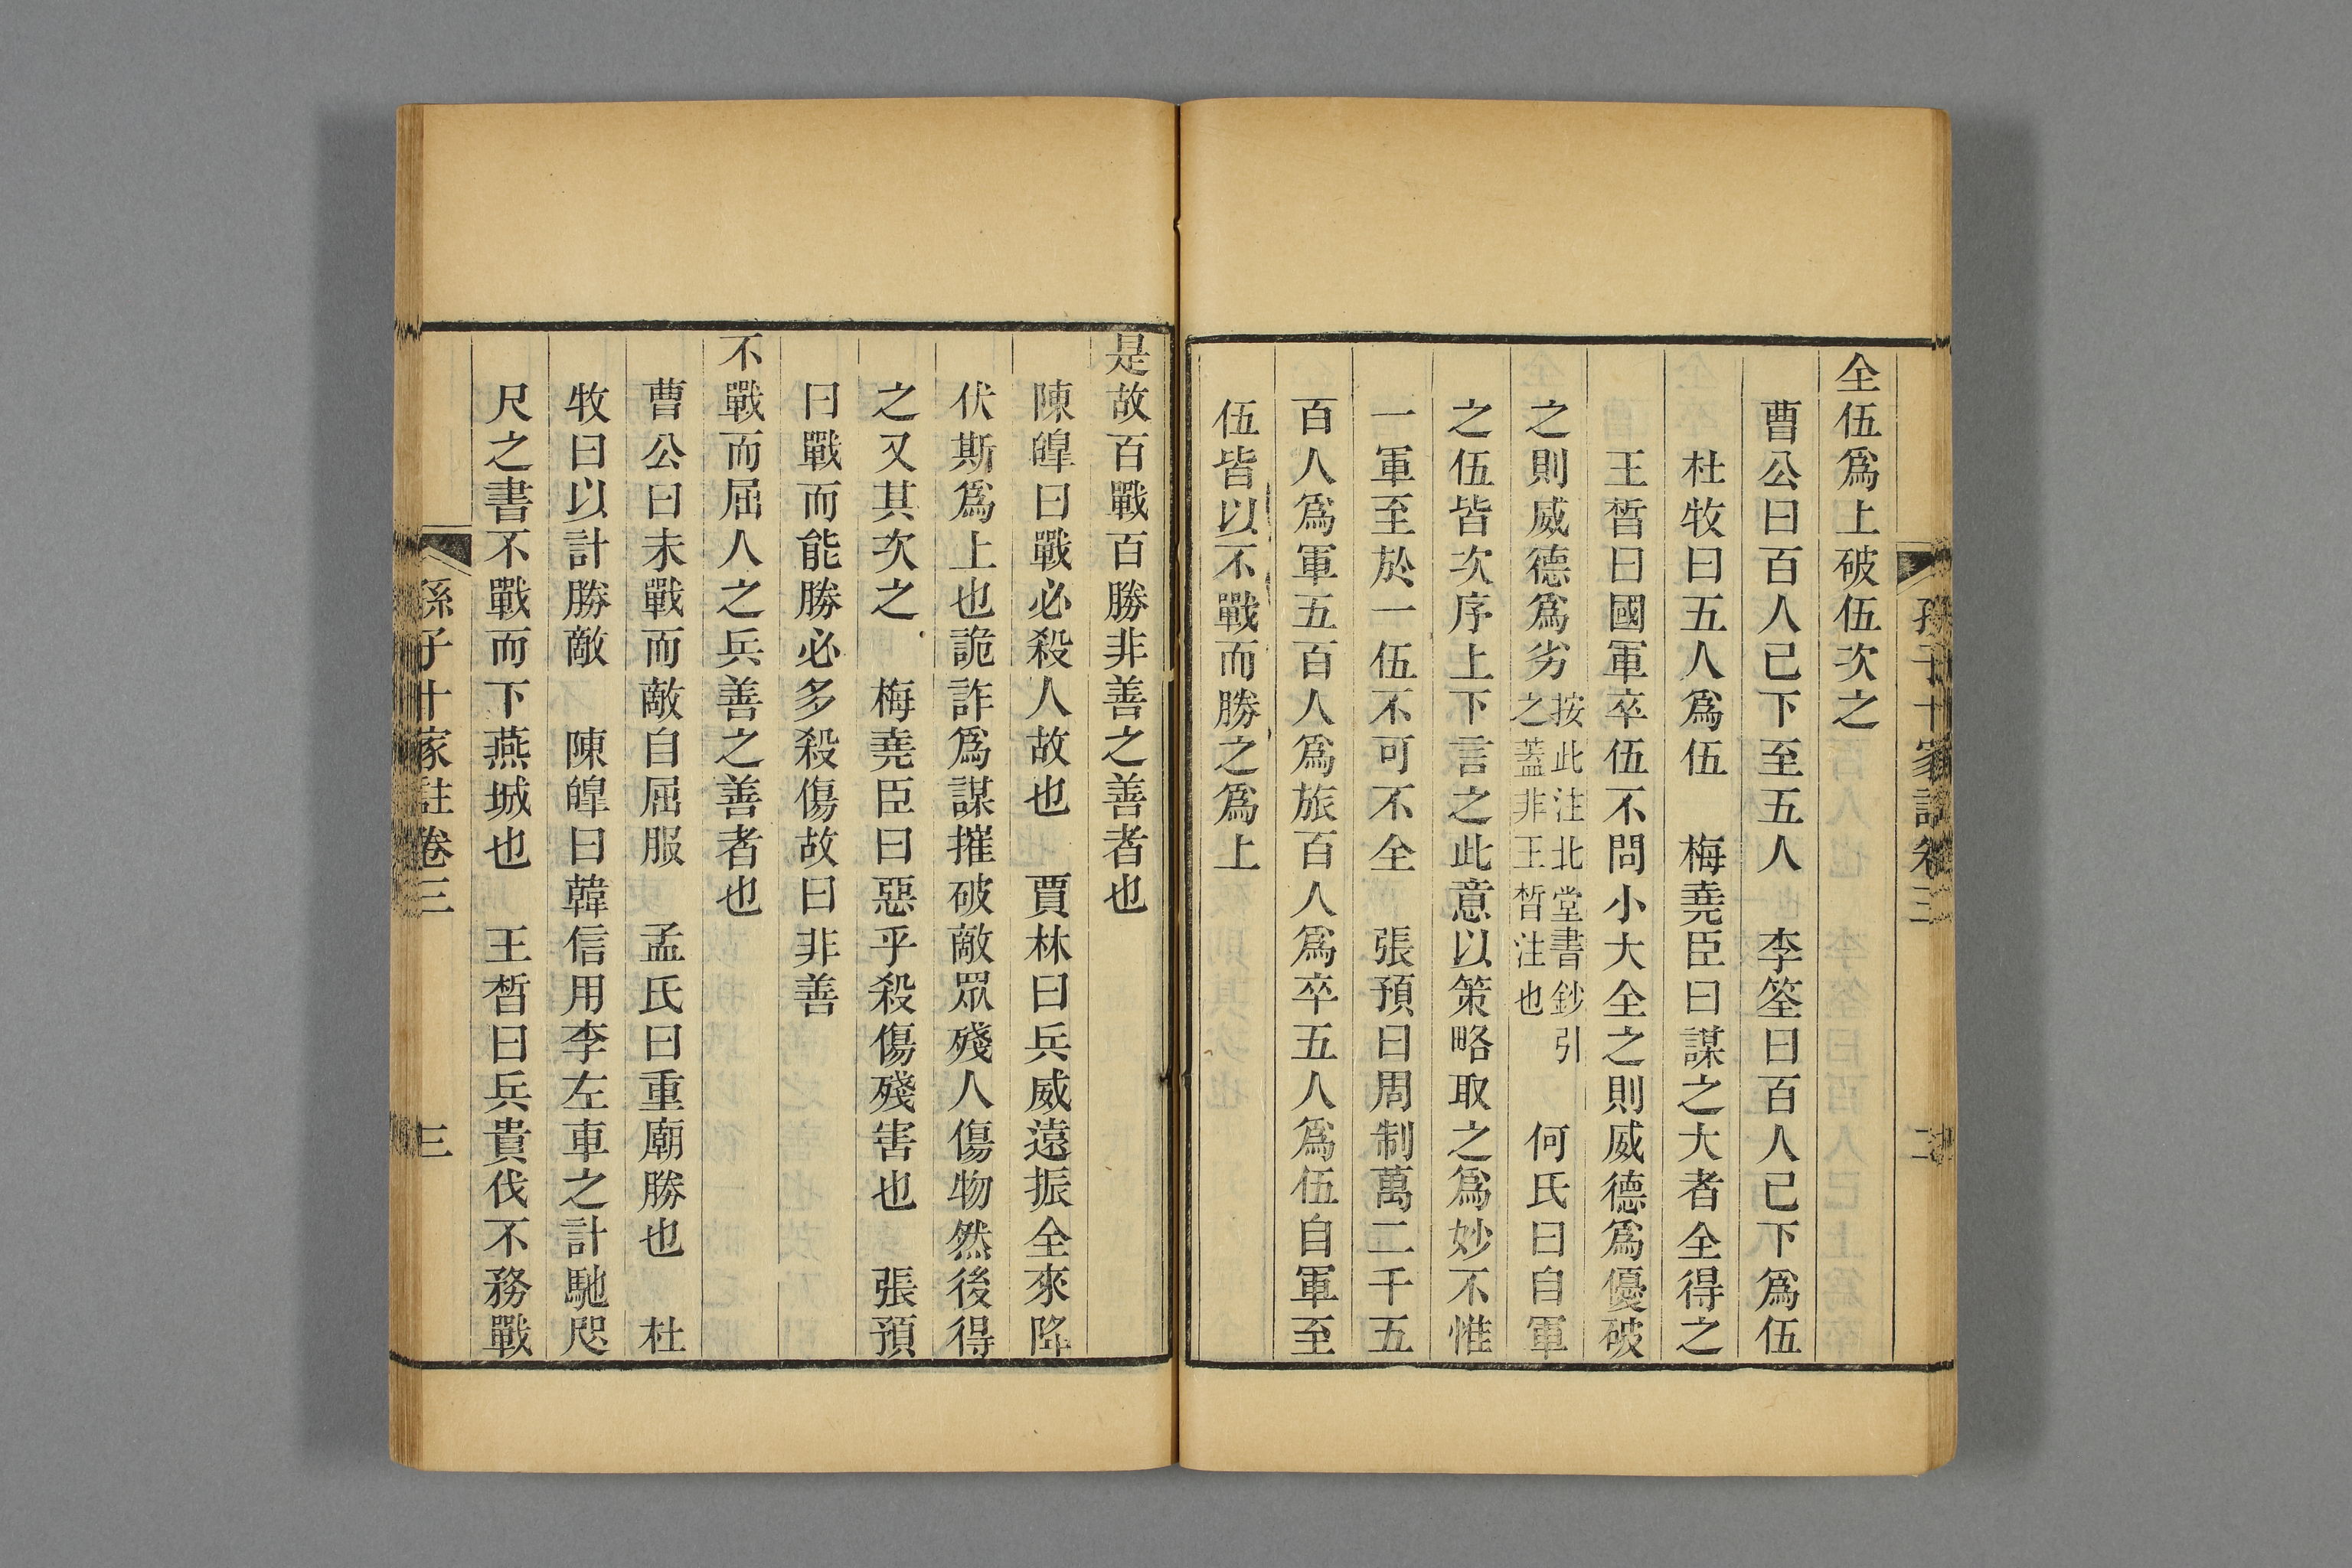 孫子十家註卷三 二
全伍爲上破伍次之
曹公曰百人已下至五人 李筌曰百人已下爲伍
杜牧曰五人爲伍 梅堯臣曰謀之大者全得之
王晳曰國軍卒伍不問小大全之則威德爲優破
之則威德爲劣 按此注北堂書鈔引之蓋非王晳注也 何氏曰自軍
之伍皆次序上下言之此意以策略取之爲妙不惟
一軍至於一伍不可不全 張預曰周制萬二千五
百人爲軍五百人爲旅百人爲卒五人爲伍自軍至
伍皆以不戰而勝之爲上
是故百戰百勝非善之善者也
陳皥曰戰必殺人故也 賈林曰兵威遠振全來降
伏斯爲上也詭詐爲謀摧破敵眾殘人傷物然後得
之又其次之 梅堯臣曰惡乎殺傷殘害也 張預
曰戰而能勝必多殺傷故曰非善
不戰而屈人之兵善之善者也
曹公曰未戰而敵自屈服 孟氏曰重廟勝也 杜
牧曰以計勝敵 陳皥曰韓信用李左車之計馳咫
尺之書不戰而下燕城也 王晳曰兵貴伐不務戰
孫子十家註卷三 三